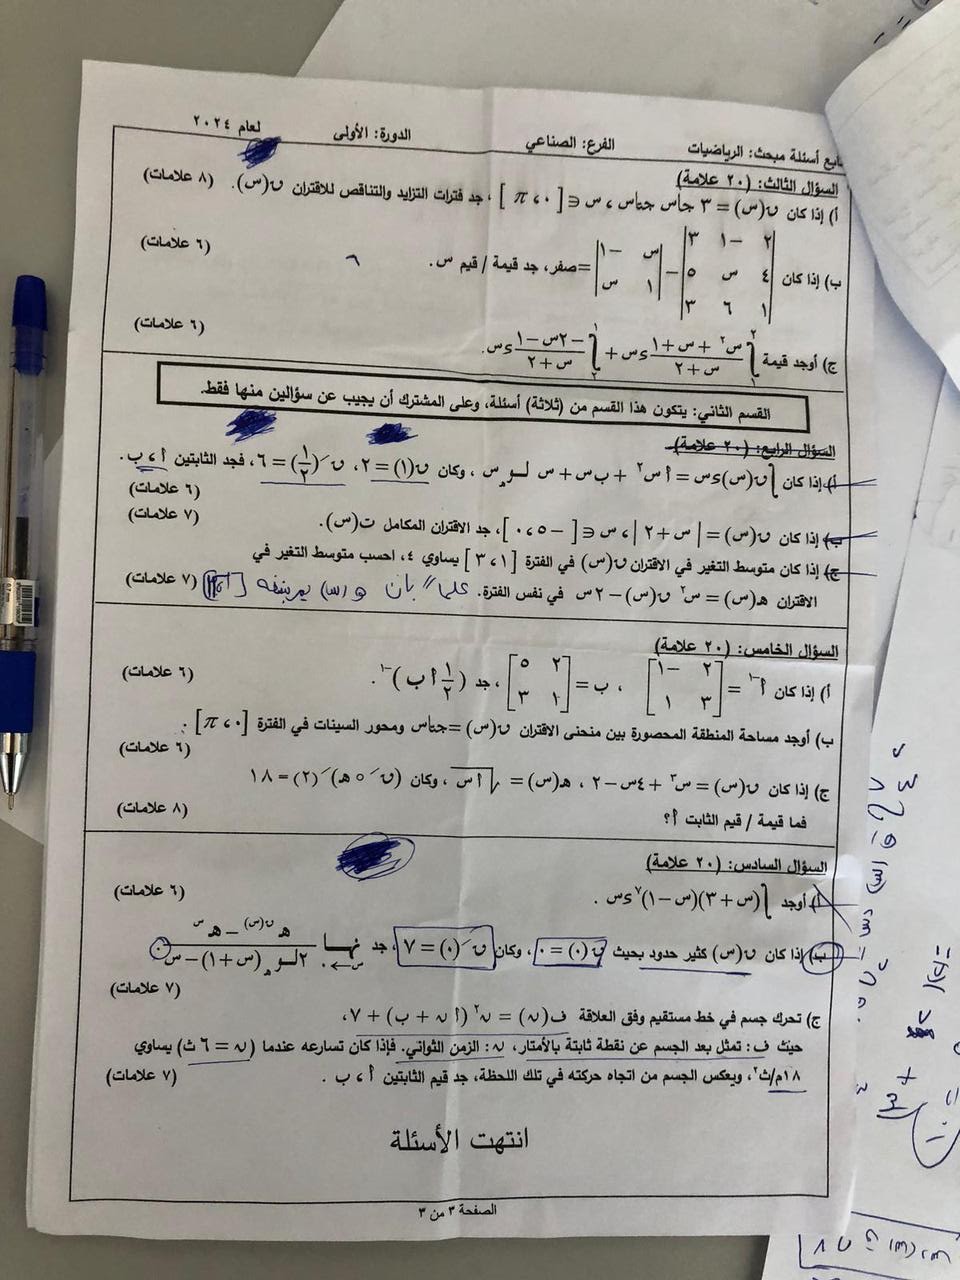 تابع أسئلة مبحث: الرياضيات الفرع: الصناعي الدورة: الأولى لعام ٢٠٢٤
السؤال الثالث: (٢٠ علامة)
أ) إذا كان ن(س) = ٣ جاس جتاس ، س ∈ [٠، π] ، جد فترات التزايد والتناقص للاقتران ن(س). (٨ علامات)
ب) إذا كان |٢ −١ ٣ ؛ ٤ س ٥ ؛ ١ ٦ ٣| − |س −١ ؛ ١ س| = صفر، جد قيمة / قيم س. (٦ علامات)
ج) أوجد قيمة ∫₁² (س² + س + ١)/(س + ٢) ءس + ∫₂¹ (−٢س − ١)/(س + ٢) ءس. (٦ علامات)
القسم الثاني: يتكون هذا القسم من (ثلاثة) أسئلة، وعلى المشترك أن يجيب عن سؤالين منها فقط.
السؤال الرابع: (٢٠ علامة)
أ) إذا كان ∫ن(س)ءس = أس² + ب س + س لــوهـ س ، وكان ن(١) = ٢، نَ(١/٢) = ٦، فجد الثابتين أ، ب.
(٦ علامات)
ب) إذا كان ن(س) = |س + ٢|، س ∈ [−٥، ٠]، جد الاقتران المكامل ت(س). (٧ علامات)
ج) إذا كان متوسط التغير في الاقتران ن(س) في الفترة [١، ٣] يساوي ٤، احسب متوسط التغير في
الاقتران هـ(س) = س² ن(س) − ٢س في نفس الفترة. علماً بأن (٧ علامات)
السؤال الخامس: (٢٠ علامة)
أ) إذا كان أ⁻¹ = [٢ −١ ؛ ٣ ١] ، ب = [٢ ٥ ؛ ١ ٣] ، جد (١/٢ أ ب)⁻¹. (٦ علامات)
ب) أوجد مساحة المنطقة المحصورة بين منحنى الاقتران ن(س) = جتاس ومحور السينات في الفترة [٠، π].
(٦ علامات)
ج) إذا كان ن(س) = س³ + ٤س − ٢ ، هـ(س) = √أس ، وكان (نَ ∘ هـ)َ(٢) = ١٨
فما قيمة / قيم الثابت أ؟ (٨ علامات)
السؤال السادس: (٢٠ علامة)
أ) أوجد ∫(س + ٣)(س − ١)⁷ ءس . (٦ علامات)
ب) إذا كان ن(س) كثير حدود بحيث ن(٠) = ٠ ، وكان نَ(٠) = ٧ ، جد نهــا س←٠ (هـ^ن(س) − هـ^س)/(٢لــوهـ(س + ١) − س)
(٧ علامات)
ج) تحرك جسم في خط مستقيم وفق العلاقة ف(ن) = ن² (أ ن + ب) + ٧،
حيث ف: تمثل بعد الجسم عن نقطة ثابتة بالأمتار، ن: الزمن الثواني. فإذا كان تسارعه عندما (ن = ٦ ث) يساوي
١٨م/ث²، ويعكس الجسم من اتجاه حركته في تلك اللحظة، جد قيم الثابتين أ، ب . (٧ علامات)
انتهت الأسئلة
الصفحة ٣ من ٣